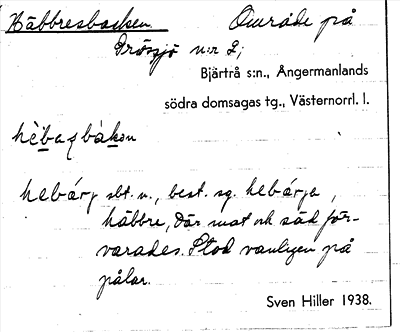 Häbbresbacken Område på
Drössjö n:r 2;
Bjärtrå s:n., Ångermanlands
södra domsagas tg., Västernorrl. l.
sbt. n., best. sg.
häbbre, där mat och säd för-
varades. Stod vanligen på
pålar.
Sven Hiller 1938.